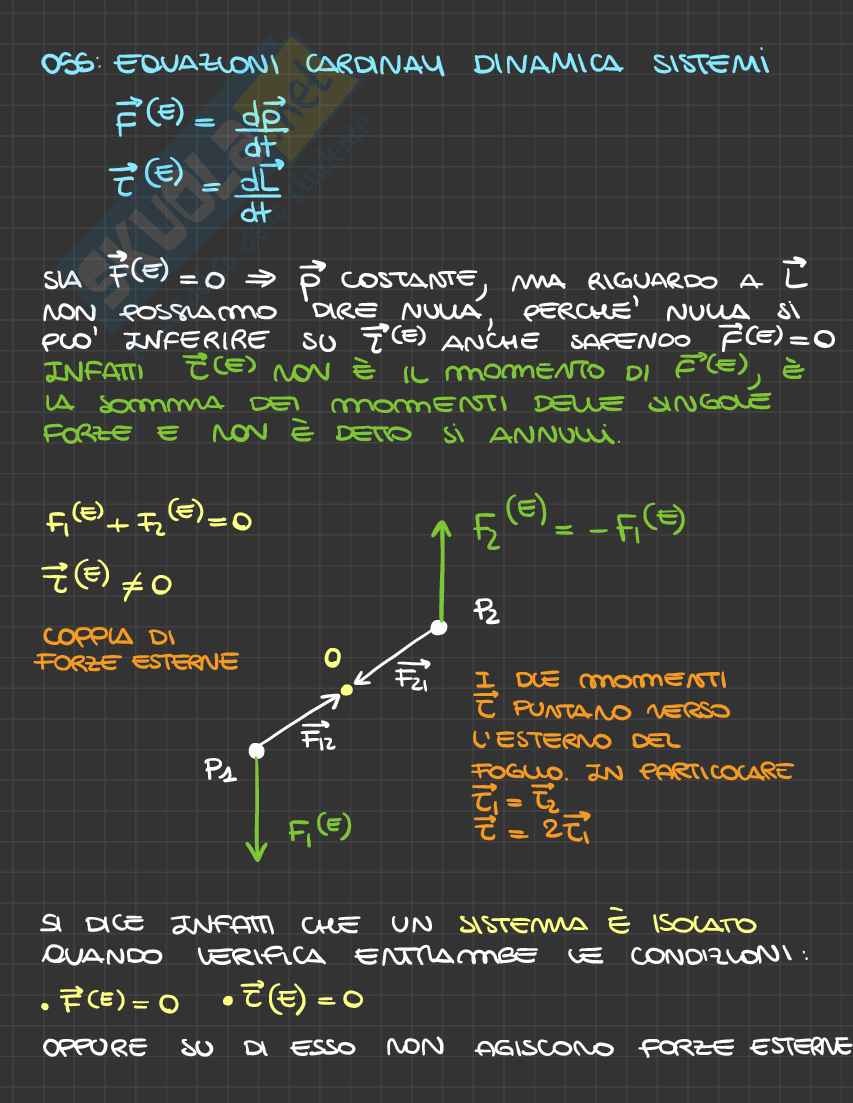 OSS: EQUAZIONI CARDINALI DINAMICA SISTEMI
F⃗^(E) = dp⃗/dt
τ⃗^(E) = dL⃗/dt
SIA F⃗^(E) = 0 ⇒ p⃗ COSTANTE, MA RIGUARDO A L⃗
NON POSSIAMO DIRE NULLA, PERCHE' NULLA SI
PUO' INFERIRE SU τ⃗^(E) ANCHE SAPENDO F⃗^(E) = 0
INFATTI τ⃗^(E) NON È IL MOMENTO DI F⃗^(E), È
LA SOMMA DEI MOMENTI DELLE SINGOLE
FORZE E NON È DETTO SI ANNULLI.
F₁^(E) + F₂^(E) = 0
F₂^(E) = -F₁^(E)
τ⃗^(E) ≠ 0
P₂
COPPIA DI
FORZE ESTERNE
O
F⃗₂₁
F⃗₁₂
P₁
F₁^(E)
I DUE MOMENTI
τ⃗ PUNTANO VERSO
L'ESTERNO DEL
FOGLIO. IN PARTICOLARE
τ⃗₁ = τ⃗₂
τ⃗ = 2τ⃗₁
SI DICE INFATTI CHE UN SISTEMA È ISOLATO
QUANDO VERIFICA ENTRAMBE LE CONDIZIONI:
• F⃗^(E) = 0 • τ⃗^(E) = 0
OPPURE SU DI ESSO NON AGISCONO FORZE ESTERNE
SKUOLA.net